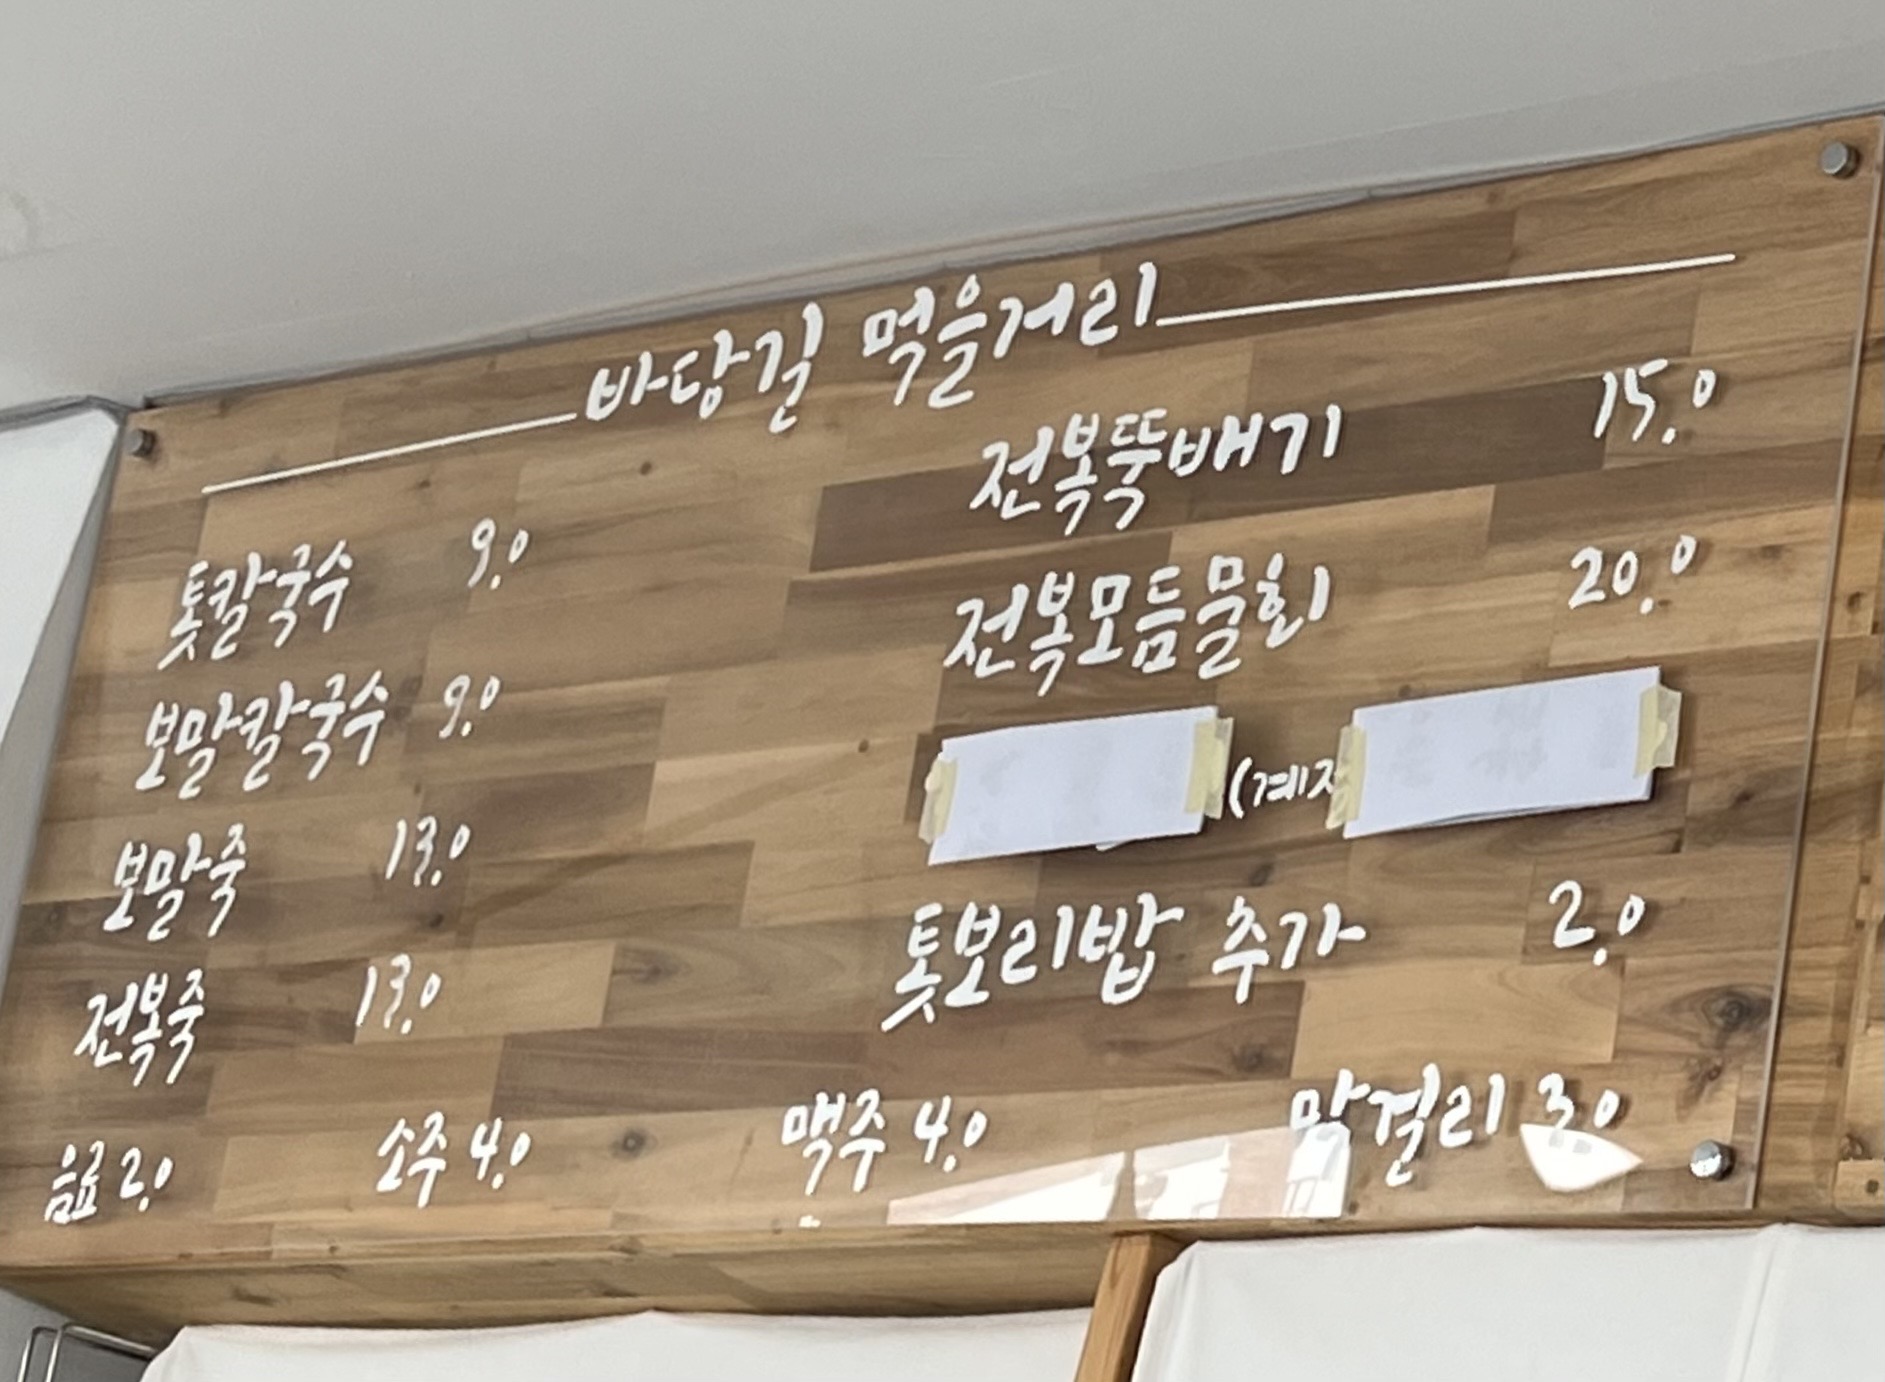 바당길 먹을거리
톳칼국수 9.0
보말칼국수 9.0
보말죽 13.0
전복죽 13.0
전복뚝배기 15.0
전복모듬물회 20.0
(계
톳보리밥 추가 2.0
음료 2.0 소주 4.0 맥주 4.0 막걸리 3.0